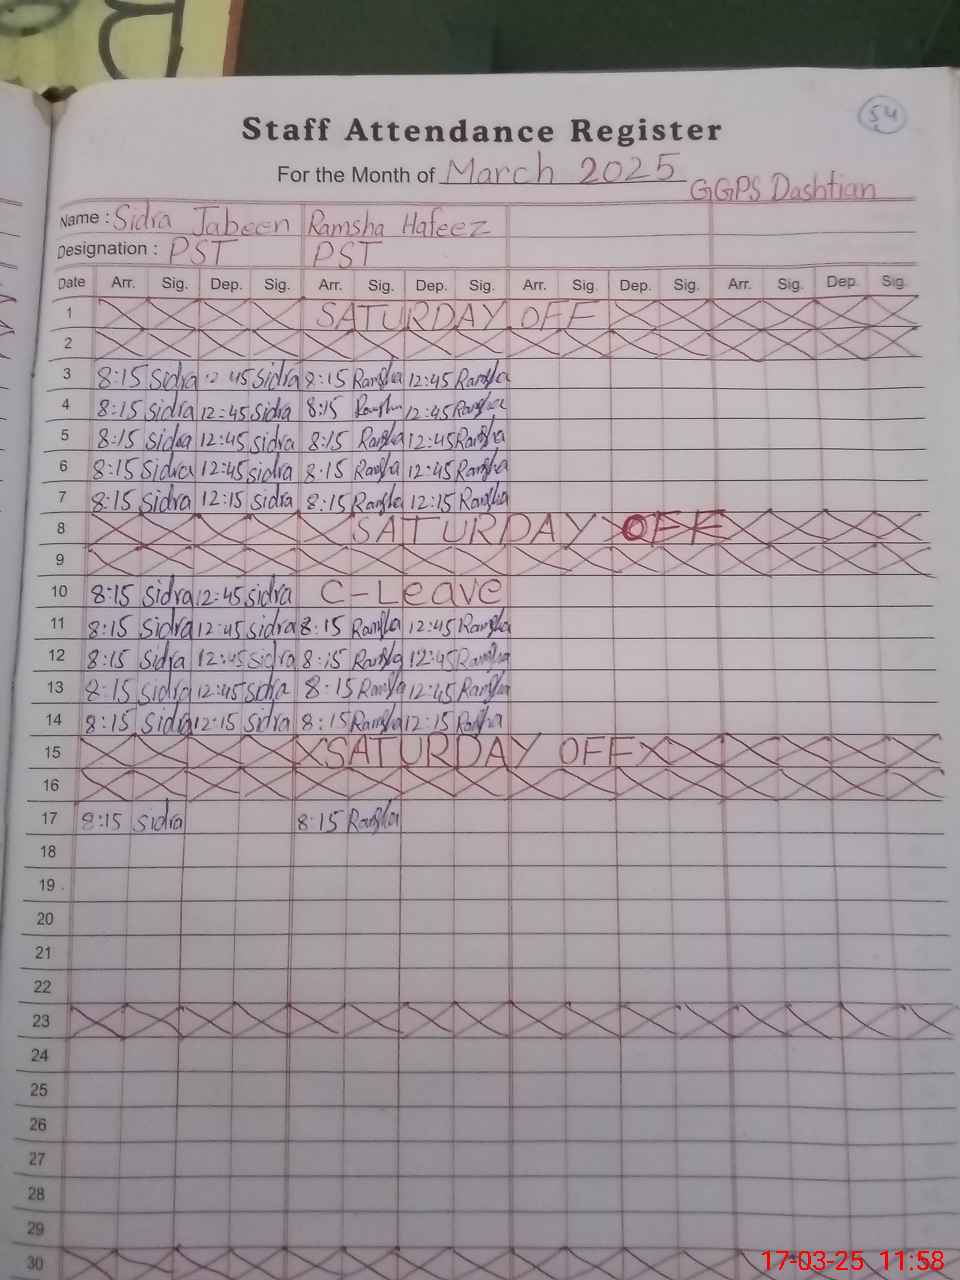 54
Staff Attendance Register
For the Month of March 2025
GGPS Dashtian
Name : Sidra Jabeen Ramsha Hafeez
Designation : PST PST
Date Arr. Sig. Dep. Sig. Arr. Sig. Dep. Sig. Arr. Sig. Dep. Sig. Arr. Sig. Dep. Sig.
1 SATURDAY OFF
2
3 8:15 Sidra 12:45 Sidra 8:15 Ramsha 12:45 Ramsha
4 8:15 Sidra 12:45 Sidra 8:15 Ramsha 12:45 Ramsha
5 8:15 Sidra 12:45 Sidra 8:15 Ramsha 12:45 Ramsha
6 8:15 Sidra 12:45 Sidra 8:15 Ramsha 12:45 Ramsha
7 8:15 Sidra 12:15 Sidra 8:15 Ramsha 12:15 Ramsha
8 SATURDAY OFF
9
10 8:15 Sidra 12:45 Sidra C-Leave
11 8:15 Sidra 12:45 Sidra 8:15 Ramsha 12:45 Ramsha
12 8:15 Sidra 12:45 Sidra 8:15 Ramsha 12:45 Ramsha
13 8:15 Sidra 12:45 Sidra 8:15 Ramsha 12:45 Ramsha
14 8:15 Sidra 12:15 Sidra 8:15 Ramsha 12:15 Ramsha
15 SATURDAY OFF
16
17 8:15 Sidra 8:15 Ramsha
18
19
20
21
22
23
24
25
26
27
28
29
30
17-03-25 11:58